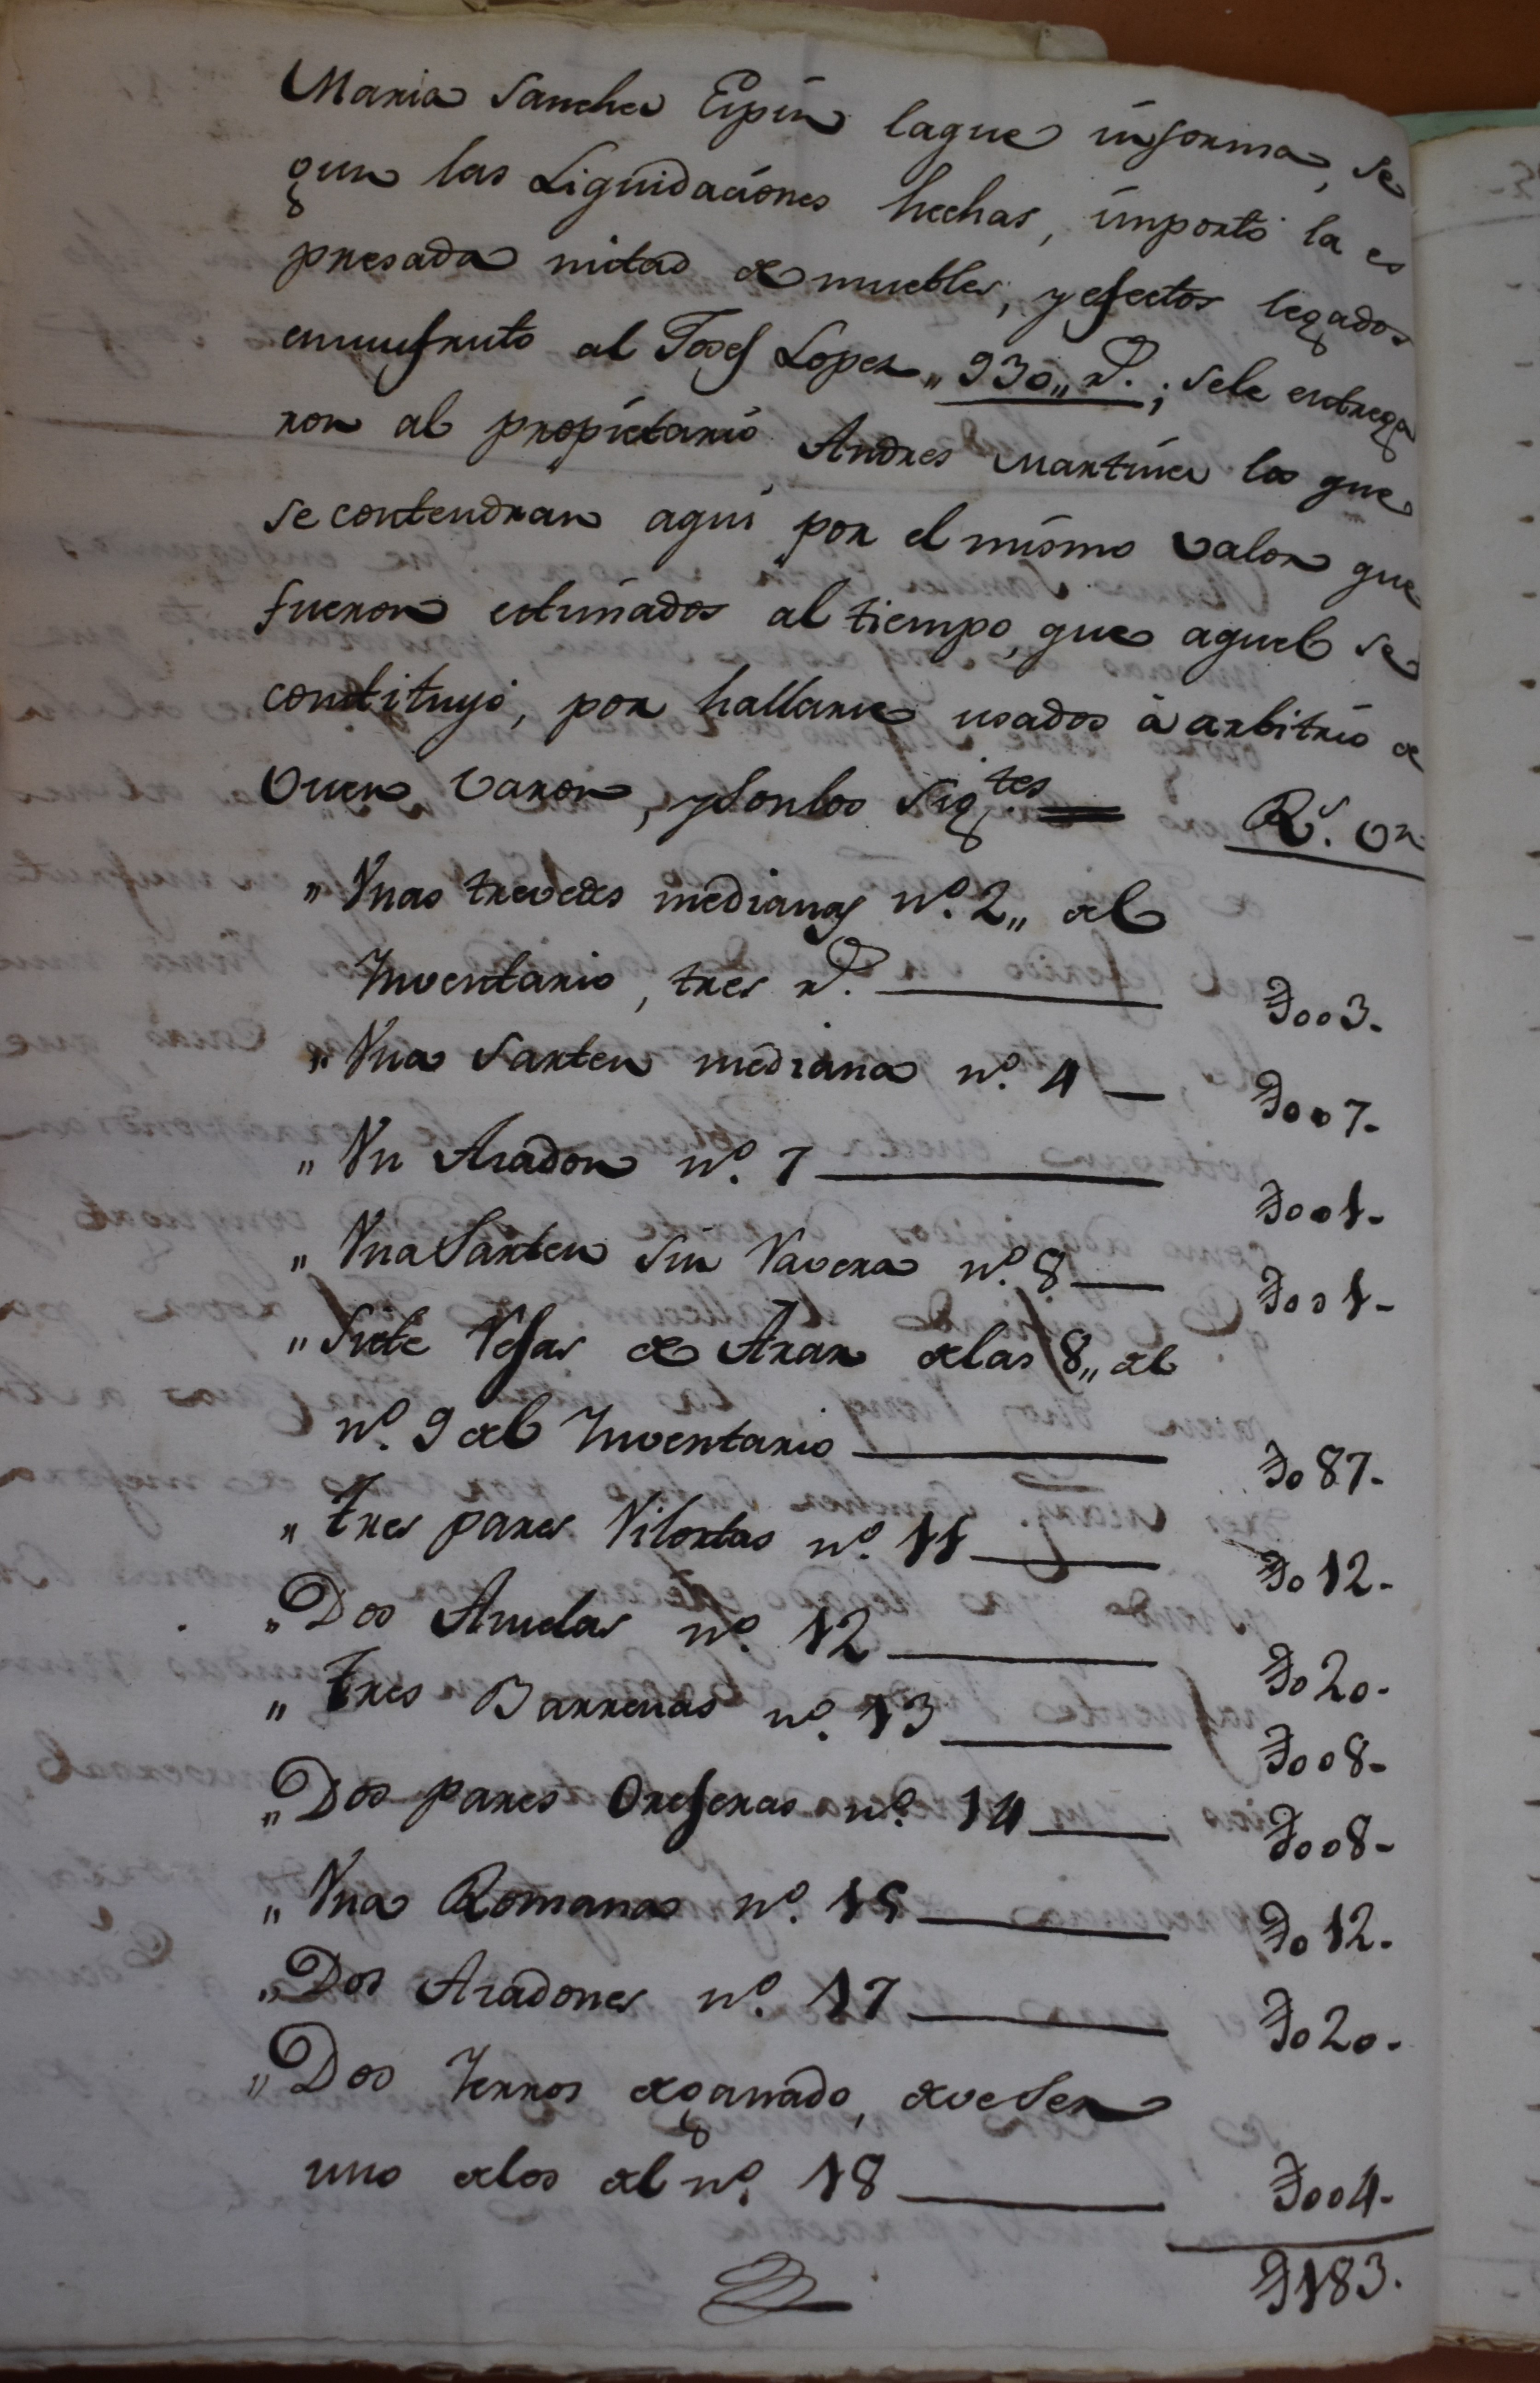 Maria Sanchez Espin laque informa, se
gun las Liquidaciones hechas, importó la es
presada mitad de muebles, y efectos legados
enusufruto al Josef Lopez „930„ r.s; sele entrega
ron al propietario Andres Martinez los que
se contendran aqui por el mismo valor que
fueron estimados al tiempo, que aquel se
constituyó, por hallarse usados à arbitrio de
buen varon, y sonlos sig.tes = R.s vn
„ Unas trevedes medianas n.º 2„ del
Inventario, tres r.s — D003-
„ Una Sarten mediana n.º 4 — D007-
„ Un Asador n.º 7 — D001-
„ Una Sarten sin Vavera n.º 8 — D001-
„ Siete Resas de Arar delas 8„ del
n.º 9 del Inventario — D087-
„ tres pares Vilortas n.º 11 — D012-
„ Dos Azuelas n.º 12 — D020-
„ tres Barrenas n.º 13 — D008-
„ Dos pares Orejeras n.º 14 — D008-
„ Una Romana n.º 15 — D012-
„ Dos Azadones n.º 17 — D020-
„ Dos Yerros deganado, deveser
uno delos del n.º 18 — D004-
D183.